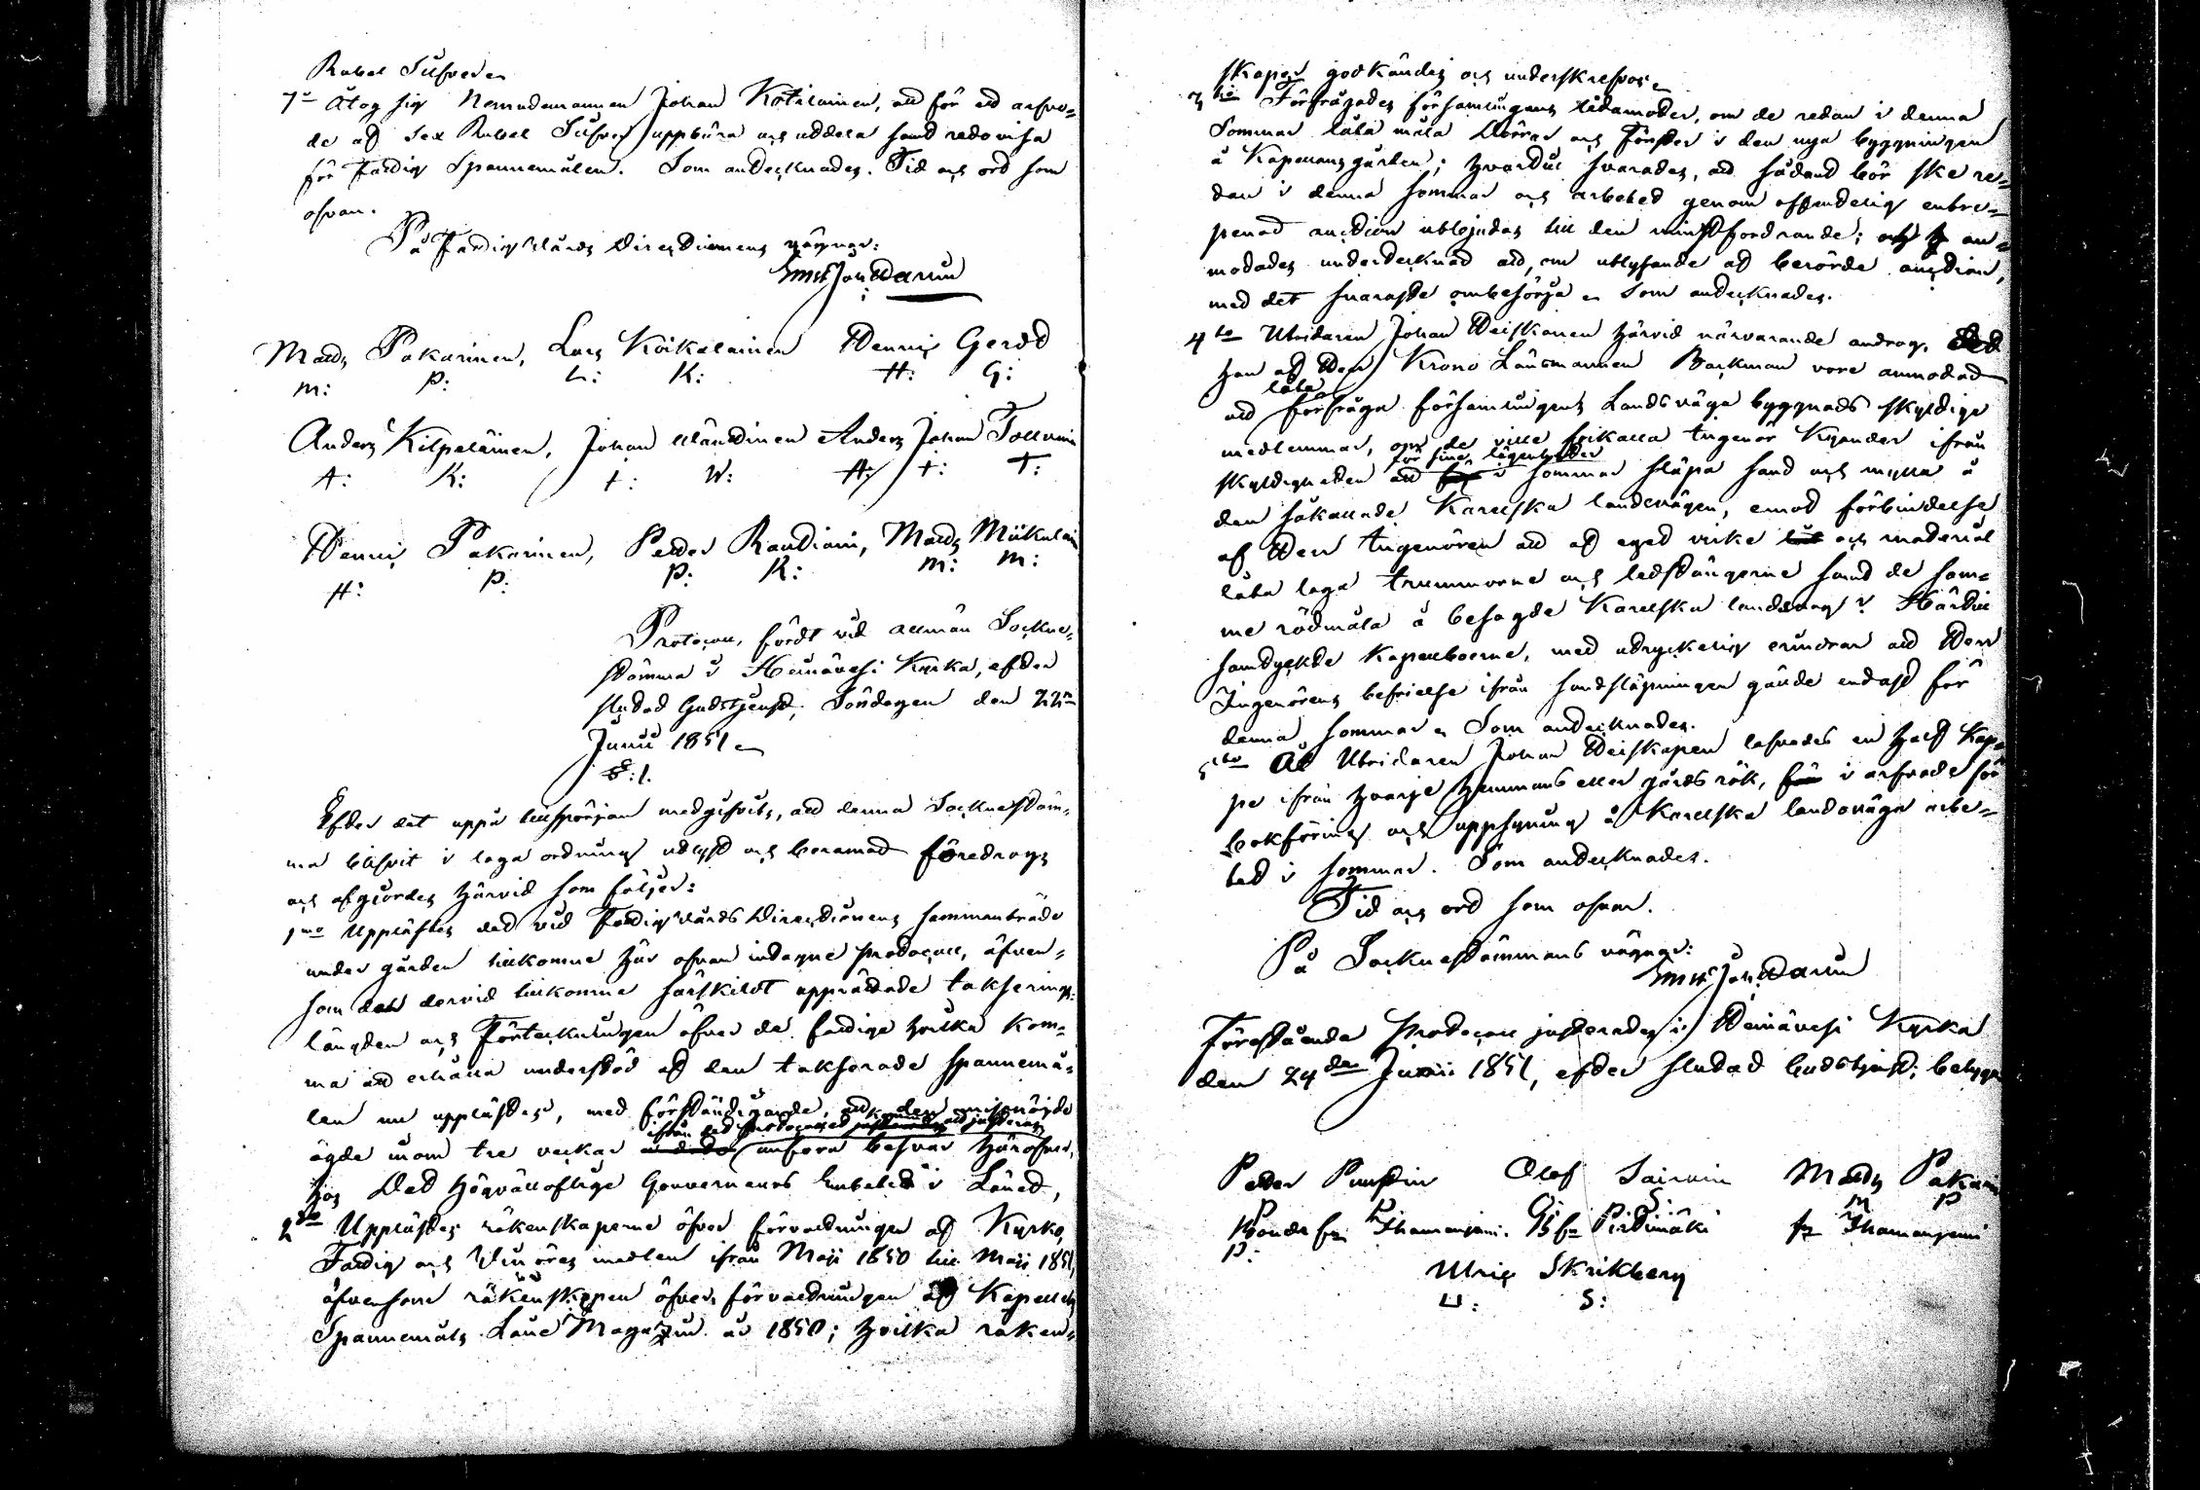 Rubel Silfver.
7o Åtog sig Nemndemannen Johan Kotilainen, att för ett arfvo-
de af sex Rubel Silfver uppbära och utdela samt redovisa
för Fattig Spannemålen. Som antecknades. Tid och ort som
ofvan.
På Fattigvårds Directionens vägnar:
Matts Pakarinen, Lars Koikalainen Henric Gerdt
M: P: L: K: H: G:
Anders Kilpeläinen, Johan Väntinen Anders Johan Tolluinen
A: K: J: W: A: J: T:
Henric Pakarinen, Petter Rautiain, Matts Mükulain
H: P: P: R: M: M:
Protocoll, fördt vid allmän Sockne-
stämma i Heinävesi Kyrka, efter
slutad Gudstjenst, Söndagen den 22n
Junii 1851.
S:1.
Efter det uppå tillspörjan medgifvits, att denna Socknestäm-
ma blifvit i laga ordning utlyst och beramad företogs
och afgjordes härvid som följer:
1mo Upplästes det vid Fattigvårds Directionens sammanträde
under gården tillkomne här ofvan intagne Protocoll, äfven-
som den dervid tillkomne särskildt upprättade taxerings-
längden och Förteckningen öfver de fattiga hvilka kom-
ma att erhålla understöd af den taxerade spannemå-
len nu upplästes, med förständigande, att den missnöjde
ifrån det Protocollet att justeras
ägde inom tre veckor anföra besvär häröfver,
hos Det Högvällofliga Gouvernements Embetet i Länet,
2do Upplästes räkenskaperne öfver förvaltningen af Kyrko,
Fattig och Vinöres medlen ifrån Maji 1850 till Maji 1851,
äfvensom räkenskapen öfver förvaltningen af Kapellets
Spannemåls Låne Magazin år 1850; hvilka räken-
skaper godkändes och underskrefvos.
3tio Förfrågades församlingens ledamöter, om de redan i denna
Sommar låta måla Dörrar och Fönster i den nya byggningen
å Kapellansgården; hvartill svarades, att sådant bör ske re-
dan i denna sommar och arbetet genom offentelig entre-
penad auction utbjudas till den minstfordrande; och an-
modades undertecknad att, om utlysande af berörde auction,
med det snaraste ombesörja. Som antecknades.
4to Utridaren Johan Heiskanen härvid närvarande androg, det
han af Herr Krono Länsmannen Backman vore anmodad
låta
att förfråga församlingens Landsväga byggnads skyldige
medlemmar, om de ville frikalla Ingeniör Kyander ifrån
för sine lägenheter
skyldigheten att i sommar släpa sand och mylla å
den såkallade Karelska landsvägen, emot förbindelse
af Herr Ingenören att af eget virke och material
låta laga trummorne och ledstängerne samt de sam-
me rödmåla å besagde Karelska landsväg? Härtill
samtyckte Kapellboerne, med utryckelig erindran att Herr
Ingenörens befrielse ifrån sandsläpningen gällde endast för
denna sommar. Som antecknades.
5to Åt Utridaren Johan Heiskanen lofvades en half Kap-
pe ifrån hvarje Hemmans eller gårds rök, i arfvode för
bokföring och uppsyning å Karelska landsväga arbe-
tet i sommar. Som antecknades.
Tid och ort som ofvan.
På Socknestämmans vägnar:
Förestående Protocoll justerades i Heinävesi Kyrka
den 24de Junii 1851, efter slutad Gudstjenst; betyga
Petter Purstin Olof Sairain Matts Pakarin
P P O: S: M P
Bonde fr. Ihamaniemi. B fr Pirttimäki fr Ihamaniemi
P:
Ulric Skrikberg
U: S: